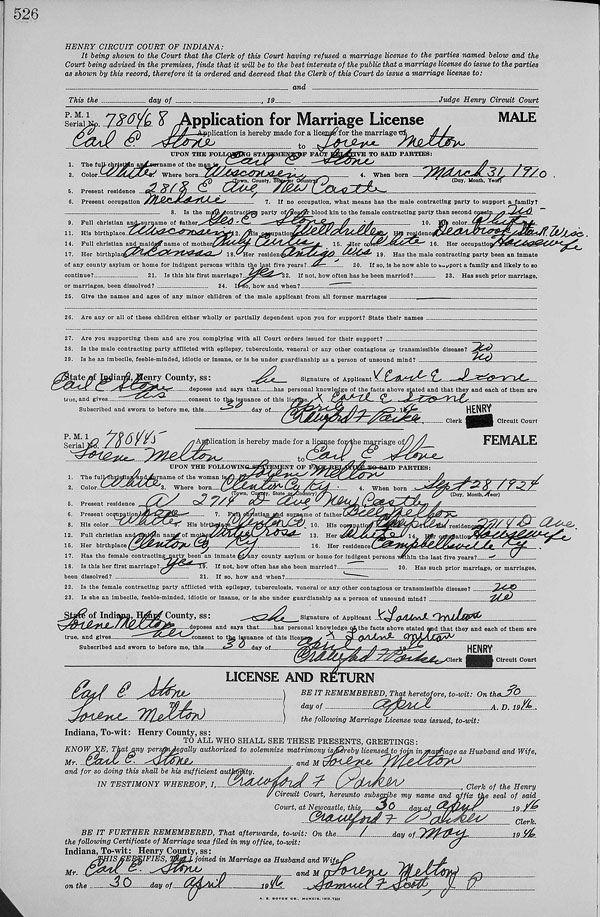 526
HENRY CIRCUIT COURT OF INDIANA:
It being shown to the Court that the Clerk of this Court having refused a marriage license to the parties named below and the
Court being advised in the premises, finds that it will be to the best interests of the public that a marriage license do issue to the parties
as shown by this record, therefore it is ordered and decreed that the Clerk of this Court do issue a marriage license to:
and
This the day of , 19 Judge Henry Circuit Court
P. M. 1
Serial No. 780468 Application for Marriage License MALE
Application is hereby made for a license for the marriage of
Earl E Stone to Lorene Melton
UPON THE FOLLOWING STATEMENT OF FACT RELATIVE TO SAID PARTIES:
1. The full christian and surname of the man is Earl E Stone
2. Color White Where born Wisconsin 4. When born March 31, 1910
(Town, County, State or Country) (Day, Month, Year)
5. Present residence 2818 E Ave, New Castle
6. Present occupation Mechanic 7. If no occupation, what means has the male contracting party to support a family?
8. Is the male contracting party of nearer blood kin to the female contracting party than second cousin No
9. Full christian and surname of father Geo E. Stone 10. His color White
11. His birthplace Wisconsin His occupation Well driller His residence Dearbrook Wisc.
14. Full christian and maiden name of mother Ruby Curtis 15. Her color White 16. Her occupation Housewife
17. Her birthplace Arkansas 18. Her residence Antigo Wis 19. Has the male contracting party been an inmate
of any county asylum or home for indigent persons within the last five years? 20. If so, is he now able to support a family and likely to so
continue? 21. Is this his first marriage? Yes 22. If not, how often has he been married? 23. Has such prior marriage,
or marriages, been dissolved? 24. If so, how and when?
25. Give the names and ages of any minor children of the male applicant from all former marriages
26. Are any or all of these children either wholly or partially dependent upon you for support? State their names
27. Are you supporting them and are you complying with all Court orders issued for their support?
28. Is the male contracting party afflicted with epilepsy, tuberculosis, veneral or any other contagious or transmissible disease? No
29. Is he an imbecile, feeble-minded, idiotic or insane, or is he under guardianship as a person of unsound mind? No
State of Indiana, Henry County, ss: he Signature of Applicant X Earl E Stone
Earl E Stone deposes and says that has personal knowledge of the facts above stated and that they and each of them are
true, and gives his consent to the issuance of this license. X Earl E Stone
Subscribed and sworn to before me, this 30 day of April
Crawford F Parker Clerk HENRY Circuit Court
P. M. 1
Serial No. 780445 Application is hereby made for a license for the marriage of FEMALE
Lorene Melton to Earl E Stone
UPON THE FOLLOWING STATEMENT OF FACT RELATIVE TO SAID PARTIES:
1. The full christian and surname of the woman is Lorene Melton
2. Color White 3. Where born Clinton Co Ky. 4. When born Sept 28 1924
(Town, County, State or Country) (Day, Month, Year)
5. Present residence 2714 D Ave New Castle
6. Present occupation 7. Full christian and surname of father Melton
8. His color White His birthplace Clinton Co. 10. His occupation residence 2714 D Ave.
12. Full christian and maiden name of mother Cross 13. Her color White 14. Her occupation Housewife
15. Her birthplace Clinton Co Ky 16. Her residence Campbellsville Ky.
17. Has the female contracting party been an inmate of any county asylum or home for indigent persons within the last five years?
18. Is this her first marriage? Yes 19. If not, how often has she been married? 20. Has such prior marriage, or marriages,
been dissolved? 21. If so, how and when?
22. Is the female contracting party afflicted with epilepsy, tuberculosis, veneral or any other contagious or transmissible disease? No
23. Is she an imbecile, feeble-minded, idiotic or insane, or is she under guardianship as a person of unsound mind? No
State of Indiana, Henry County, ss: she Signature of Applicant X Lorene Melton
Lorene Melton deposes and says that has personal knowledge of the facts above stated and that they and each of them are
true, and gives her consent to the issuance of this license. X Lorene Melton
Subscribed and sworn to before me, this 30 day of April
Crawford F Parker Clerk HENRY Circuit Court
LICENSE AND RETURN
Earl E Stone BE IT REMEMBERED, That heretofore, to-wit: On the 30
TO day of April A. D. 1946,
Lorene Melton the following Marriage License was issued, to-wit:
Indiana, To-wit: Henry County, ss:
TO ALL WHO SHALL SEE THESE PRESENTS, GREETINGS:
KNOW YE, That any person legally authorized to solemnize matrimony is hereby licensed to join in marriage as Husband and Wife,
Mr. Earl E. Stone and M Lorene Melton
and for so doing this shall be his sufficient authority.
IN TESTIMONY WHEREOF, I, Crawford F Parker, Clerk of the Henry
Circuit Court, hereunto subscribe my name and affix the seal of said
Court, at Newcastle, this 30 day of April 1946
Crawford F Parker Clerk.
BE IT FURTHER REMEMBERED, That afterwards, to-wit: On the 1 day of May 1946,
the following Certificate of Marriage was filed in my office, to-wit:
Indiana, To-wit: Henry County, ss:
THIS CERTIFIES, That I joined in Marriage as Husband and Wife
Mr. Earl E. Stone and M Lorene Melton
on the 30 day of April 1946 Samuel F Scott, J P